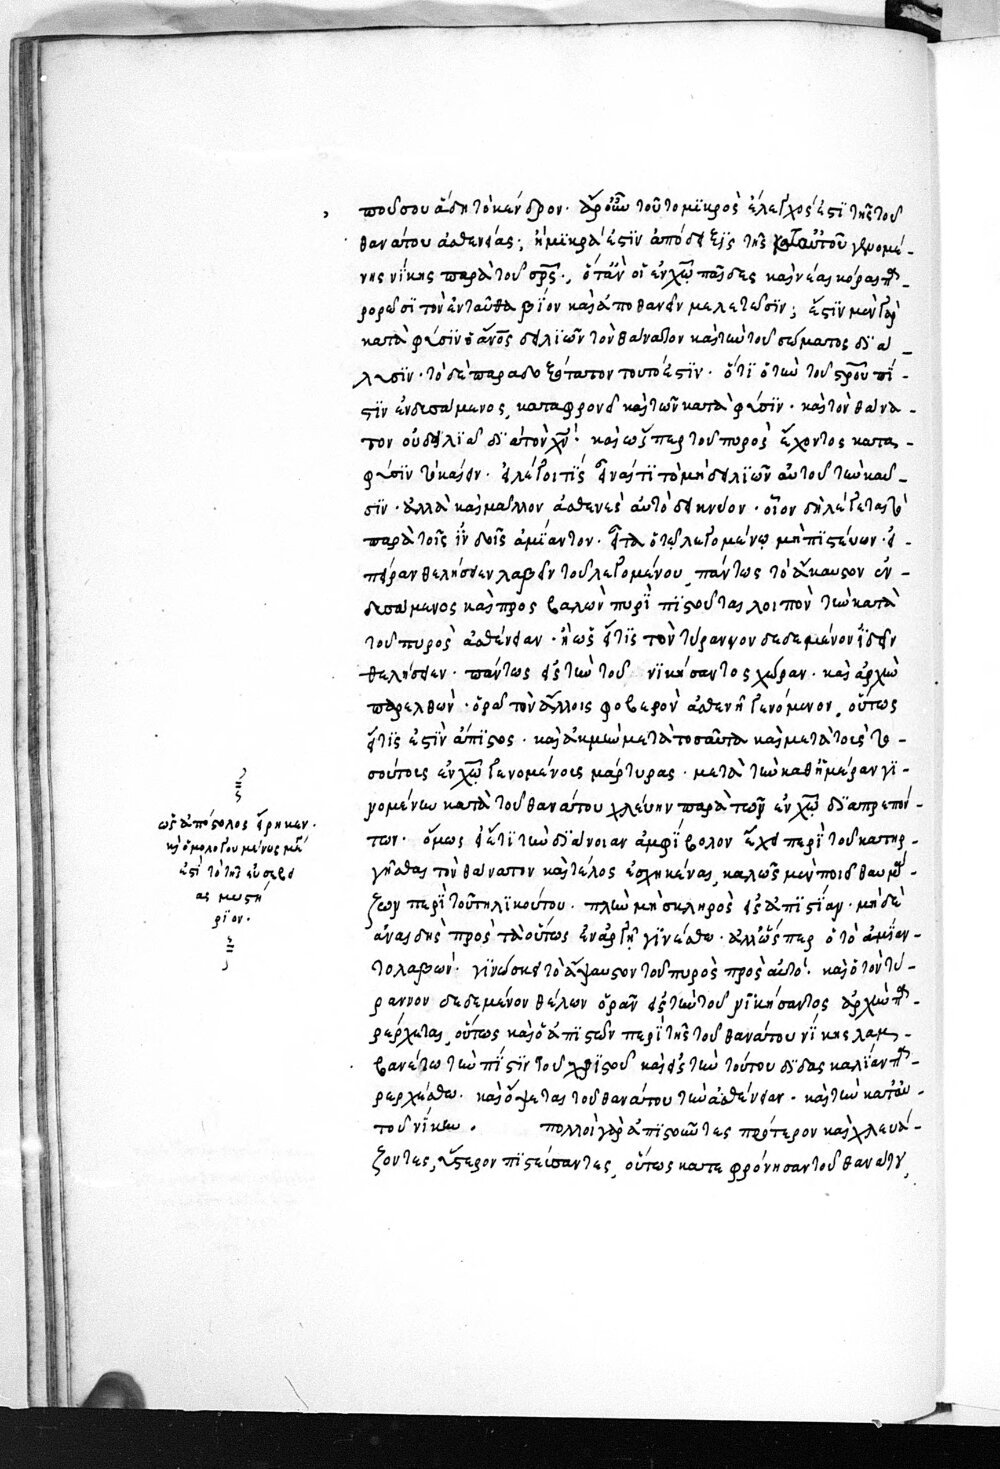 ποῦ σου ἅδη τὸ κέντρον· ἆρ' οὖν τοῦτο μικρὸς ἔλεγχός ἐστι τῆς τοῦ
θανάτου ἀσθενείας; ἢ μικρά ἐστιν ἀπόδειξις τῆς κατ' αὐτοῦ γενομέ-
νης νίκης παρὰ τοῦ σρ̅ς·, ὅταν οἱ ἐν χω̅ παῖδες καὶ νέαι κόραι πα-
ρορῶσι τὸν ἐνταῦθα βίον καὶ ἀποθανεῖν μελετῶσιν; ἔστιν μὲν γὰρ
κατὰ φύσιν ὁ ἄνο̅ς δειλιῶν τὸν θάνατον καὶ τὴν τοῦ σώματος διά-
λυσιν· τὸ δὲ παραδοξότατον τοῦτό ἐστιν· ὅτι ὁ τὴν τοῦ σρ̅οῦ πί-
στιν ἐνδυσάμενος, καταφρονεῖ καὶ τῶν κατὰ φύσιν· καὶ τὸν θάνα-
τον οὐ δειλιᾶ διὰ τὸν χν̅· καὶ ὥσπερ τοῦ πυρὸς ἔχοντος κατὰ
φύσιν τὸ καίειν· εἰ λέγοι τίς εἶναί τι τὸ μὴ δειλιῶν αὐτοῦ τὴν καῦ-
σιν· ἀλλὰ καὶ μᾶλλον ἀσθενὲς αὐτὸ δεικνύον· οἷον δὴ λέγεται τὸ
παρὰ τοῖς ἰνδοῖς ἀμίαντον· εἶτα ὁ τῶ λεγομένῳ μὴ πιστεύων· εἰ
πεῖραν θελήσειεν λαβεῖν τοῦ λεγομένου, πάντως τὸ ἄκαυσον ἐν-
δυσάμενος καὶ προσβαλὼν πυρὶ πιστοῦται λοιπὸν τὴν κατὰ
τοῦ πυρὸς ἀσθένειαν· ἢ ὡς εἴ τις τὸν τύραννον δεδεμένον ἰδεῖν
θελήσειεν· πάντως εἰς τὴν τοῦ νικήσαντος χώραν· καὶ ἀρχὴν
παρελθὼν· ὁρᾶ τὸν ἄλλοις φοβερὸν ἀσθενῆ γενόμενον, οὕτως
εἴ τις ἐστὶν ἄπιστος· καὶ ἀκμὴν μετὰ τοσαῦτα καὶ μετὰ τοὺς το-
σούτους ἐν χω̅ γενομένους μάρτυρας· μετὰ τὴν καθ' ἡμέραν γι-
νομένην κατὰ τοῦ θανάτου χλεύην παρὰ τῶν ἐν χω̅ διαπρεπόν-
των· ὅμως εἰ ἔτι τὴν διάνοιαν ἀμφίβολον ἔχει περὶ τοῦ κατηρ-
γῆσθαι τὸν θάνατον καὶ τέλος ἐσχηκέναι, καλῶς μὲν ποιεῖ θαυμά-
ζων περὶ τοῦ τηλικούτου· πλὴν μὴ σκληρὸς εἰς ἀπιστίαν· μηδὲ
ἀναιδὴς πρὸς τὰ οὕτως ἐναργῆ γινέσθω· ἀλλ' ὥσπερ ὁ τὸ ἀμίαν-
το λαβὼν· γινώσκει τὸ ἄψαυστον τοῦ πυρὸς πρὸς αὐτό· καὶ ὁ τὸν τύ-
ραννον δεδεμένον θέλων ὁρᾶν εἰς τὴν τοῦ νικήσαντος ἀρχὴν πα-
ρέρχεται, οὕτως καὶ ὁ ἀπιστῶν περὶ τῆς τοῦ θανάτου νίκης λαμ-
βανέτω τὴν πίστιν τοῦ χριστοῦ καὶ εἰς τὴν τούτου διδασκαλίαν πα-
ρερχέσθω· καὶ ὄψεται τοῦ θανάτου τὴν ἀσθένειαν· καὶ τὴν κατ' αὐ-
τοῦ νίκην. πολλοὶ γὰρ ἀπιστοῦντες πρότερον καὶ χλευά-
ζοντες, ὕστερον πιστεύσαντες, οὕτως κατεφρόνησαν τοῦ θανάτου,
ὡς ὁ ἀπόστολος εἴρηκεν·
καὶ ὁμολογουμένως μέγα
ἐστὶ τὸ τῆς εὐσεβεί
ας μυστή
ριον·